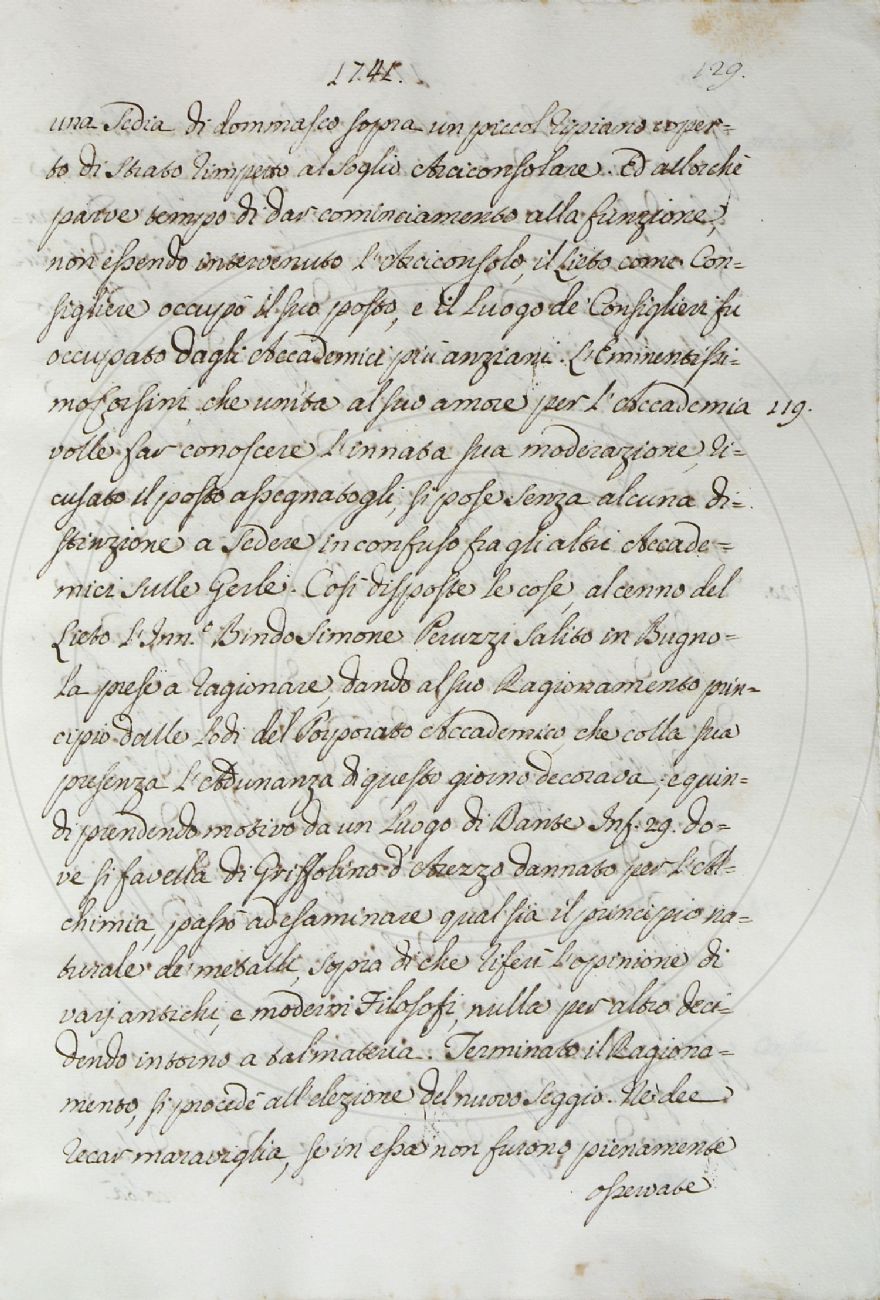 1741.
129.
una Sedia di dommasco sopra un piccol ripiano coper=
to di strato rimpetto al Soglio Arciconsolare. Ed allorchè
parve tempo di dar cominciamento alla funzione,
non essendo intervenuto l'Arciconsolo, il Lieto come Con=
sigliere occupò il suo posto, e il Luogo de' Consiglieri fu
occupato dagli Accademici più anziani. L'Eminentissi=
mo Corsini, che unita al suo amore per l'Accademia
119.
volle far conoscere l'innata sua moderazione, ri=
cusato il posto assegnatogli, si pose senza alcuna di=
stinzione a sedere in confuso fra gli altri Accade=
mici sulle Gerle. Così disposte le cose, al cenno del
Lieto l'Inn.º Bindo Simone Peruzzi salito in Bugno=
la prese a ragionare, dando al suo Ragionamento prin=
cipio dalle Lodi del Porporato Accademico, che colla sua
presenza l'Adunanza di questo giorno decorava; e quin=
di prendendo motivo da un Luogo di Dante Inf. 29. do=
ve si favella di Griffolino d'Arezzo dannato per l'Al=
chimia, passò ad esaminare qual sia il principio na=
turale de' metalli, sopra di che riferì l'opinione di
varj antichi, e moderni Filosofi, nulla per altro deci=
dendo intorno a tal materia. Terminato il Ragiona=
mento, si procedè all'elezione del nuovo Seggio. Nè dee
recar maraviglia, se in essa non furono pienamente
osservate